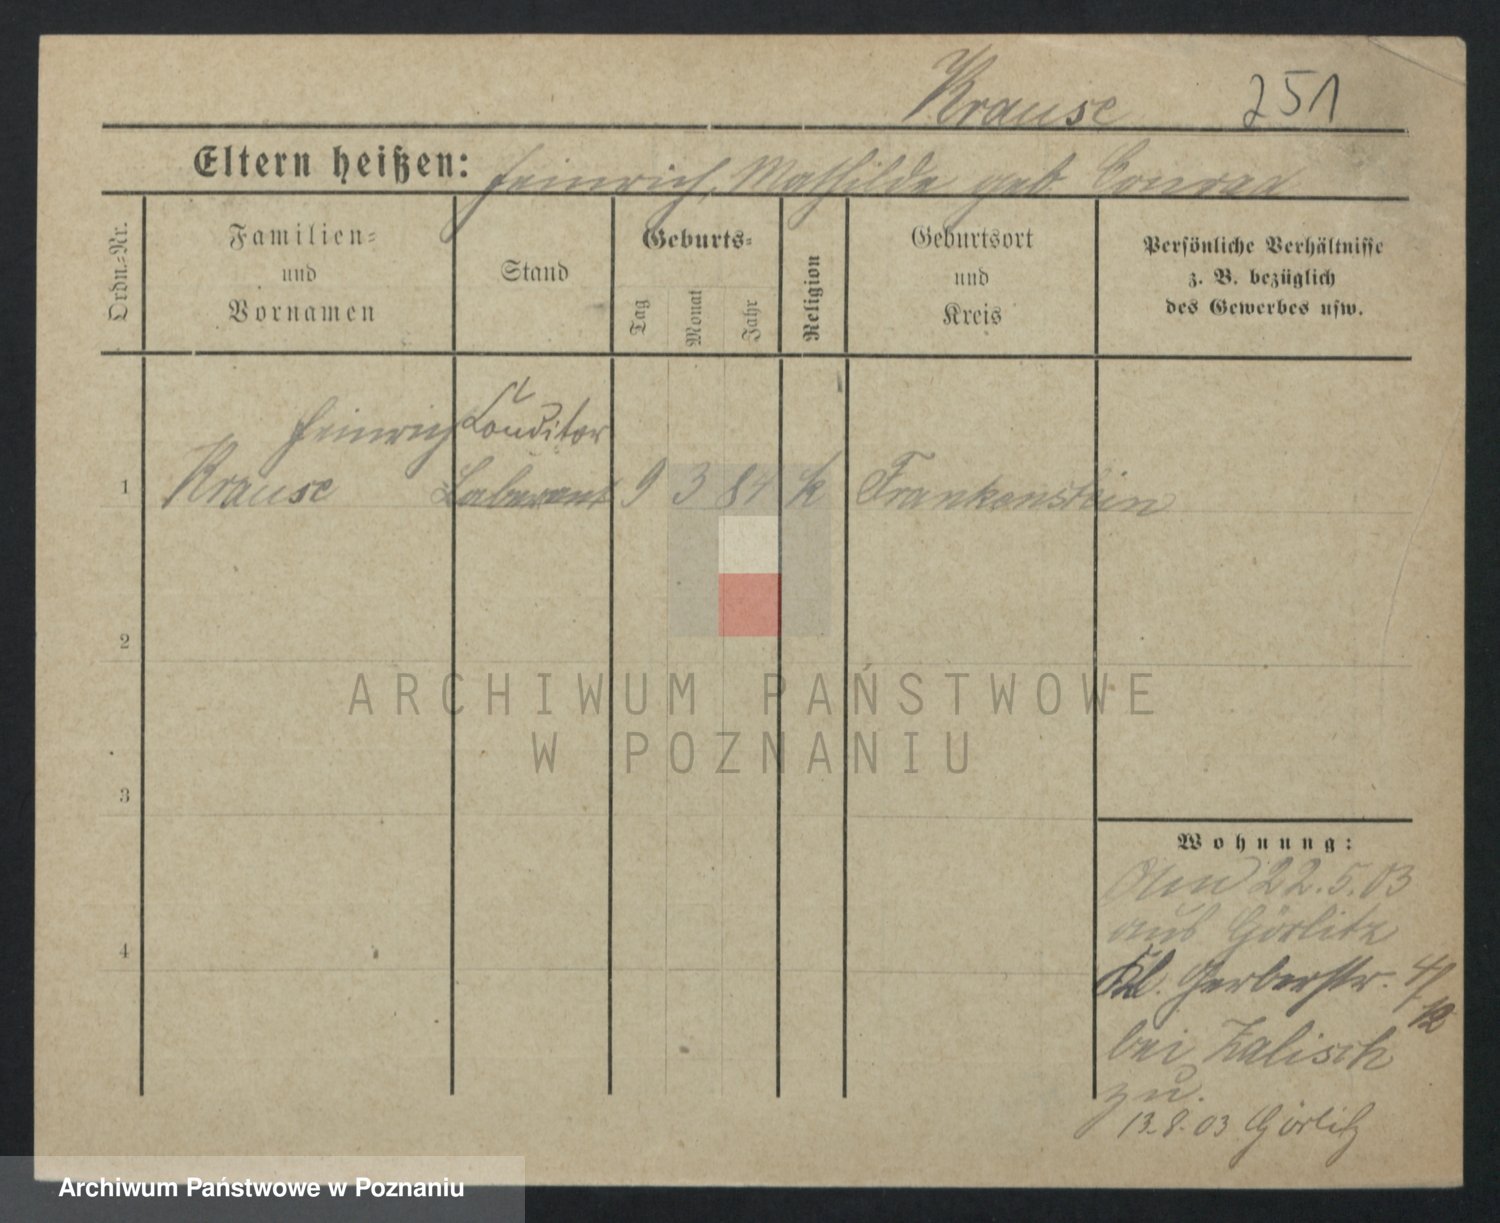 Krause 251
Eltern heißen: Heinrich, Mathilde geb. Conrad
Ordn.-Nr.
Familien-
und
Vornamen
Stand
Geburts-
Tag
Monat
Jahr
Religion
Geburtsort
und
Kreis
Persönliche Verhältnisse
z. B. bezüglich
des Gewerbes usw.
Heinrich Conditor
1 Krause 9 3 84 k Frankenstein
2
ARCHIWUM PAŃSTWOWE
W POZNANIU
3
Wohnung:
22.5.03
aus Görlitz
4
Kl. Gerberstr. 4/
12
bei Kalisch
zu.
13.8.03 Görlitz
Archiwum Państwowe w Poznaniu